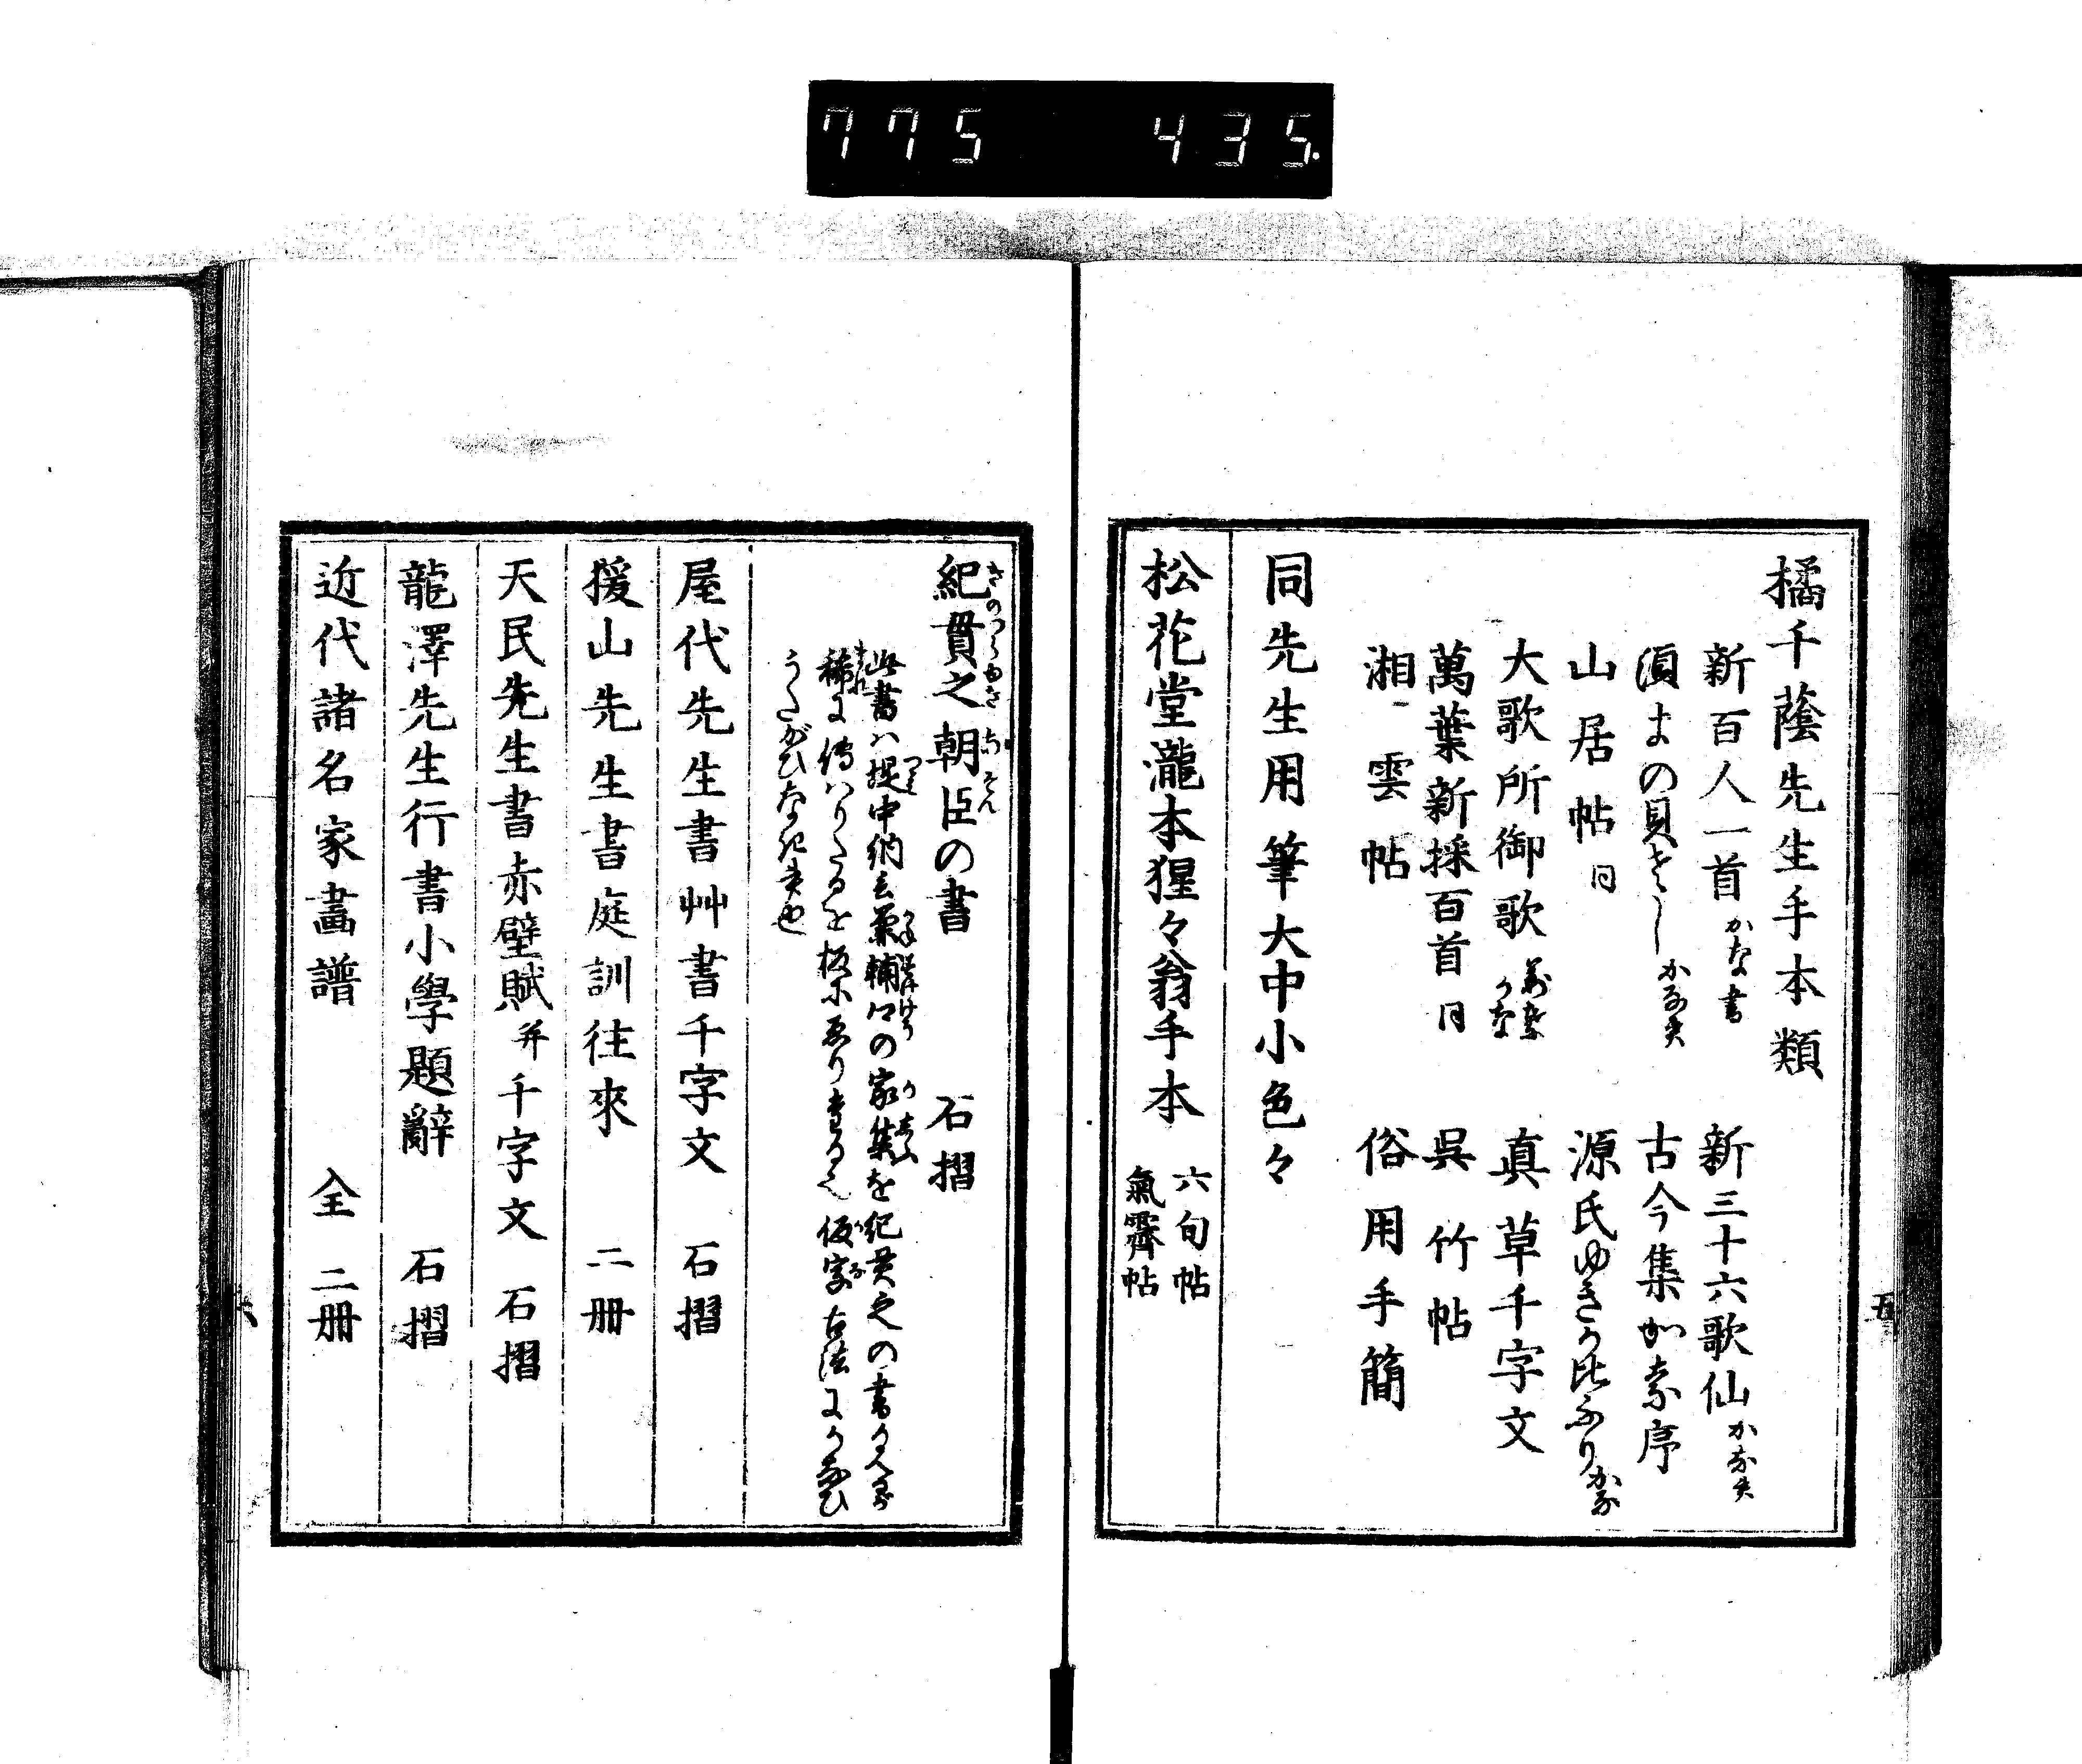 775 435.
橘千蔭先生手本類
新百人一首 かな書
新三十六歌仙 かな夫
濵まの貝
古今集かな序
山居帖 同
源氏ゆきかひふり かな
大歌所御歌 万葉かな
真草千字文
萬葉新採百首 同
呉竹帖
湘雲帖
俗用手簡
同先生用筆大中小色々
松花堂瀧本猩々翁手本
六旬帖
氣霽帖
五
紀貫之朝臣の書 石摺
きのつらゆき あそん
此書ハ堤中納言兼輔の家集を紀貫之の書
稀に傳ハりたるを板にゑり 仮字古法に
うたがひなき
屋代先生書艸書千字文 石摺
猨山先生書庭訓往來 二冊
天民先生書赤壁賦并千字文 石摺
龍澤先生行書小學題辭 石摺
近代諸名家畵譜 全二冊
六